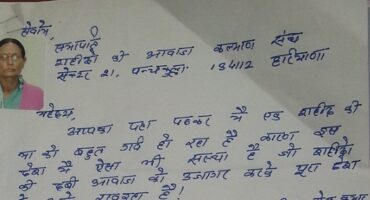 सेवामें,
सभापति
शहीदों की आवाज कल्याण संघ
सेक्टर 21, पन्चकुला 134112 हरियाणा
महोदय,
आपका पत्र पढ़कर मैं एक शहीद की
मां को बहुत गर्व हो रहा है कारण इस
देश में ऐसा भी संस्था है जो शहीदों
की दबी आवाज को उजागर करके पूरा देश
है!